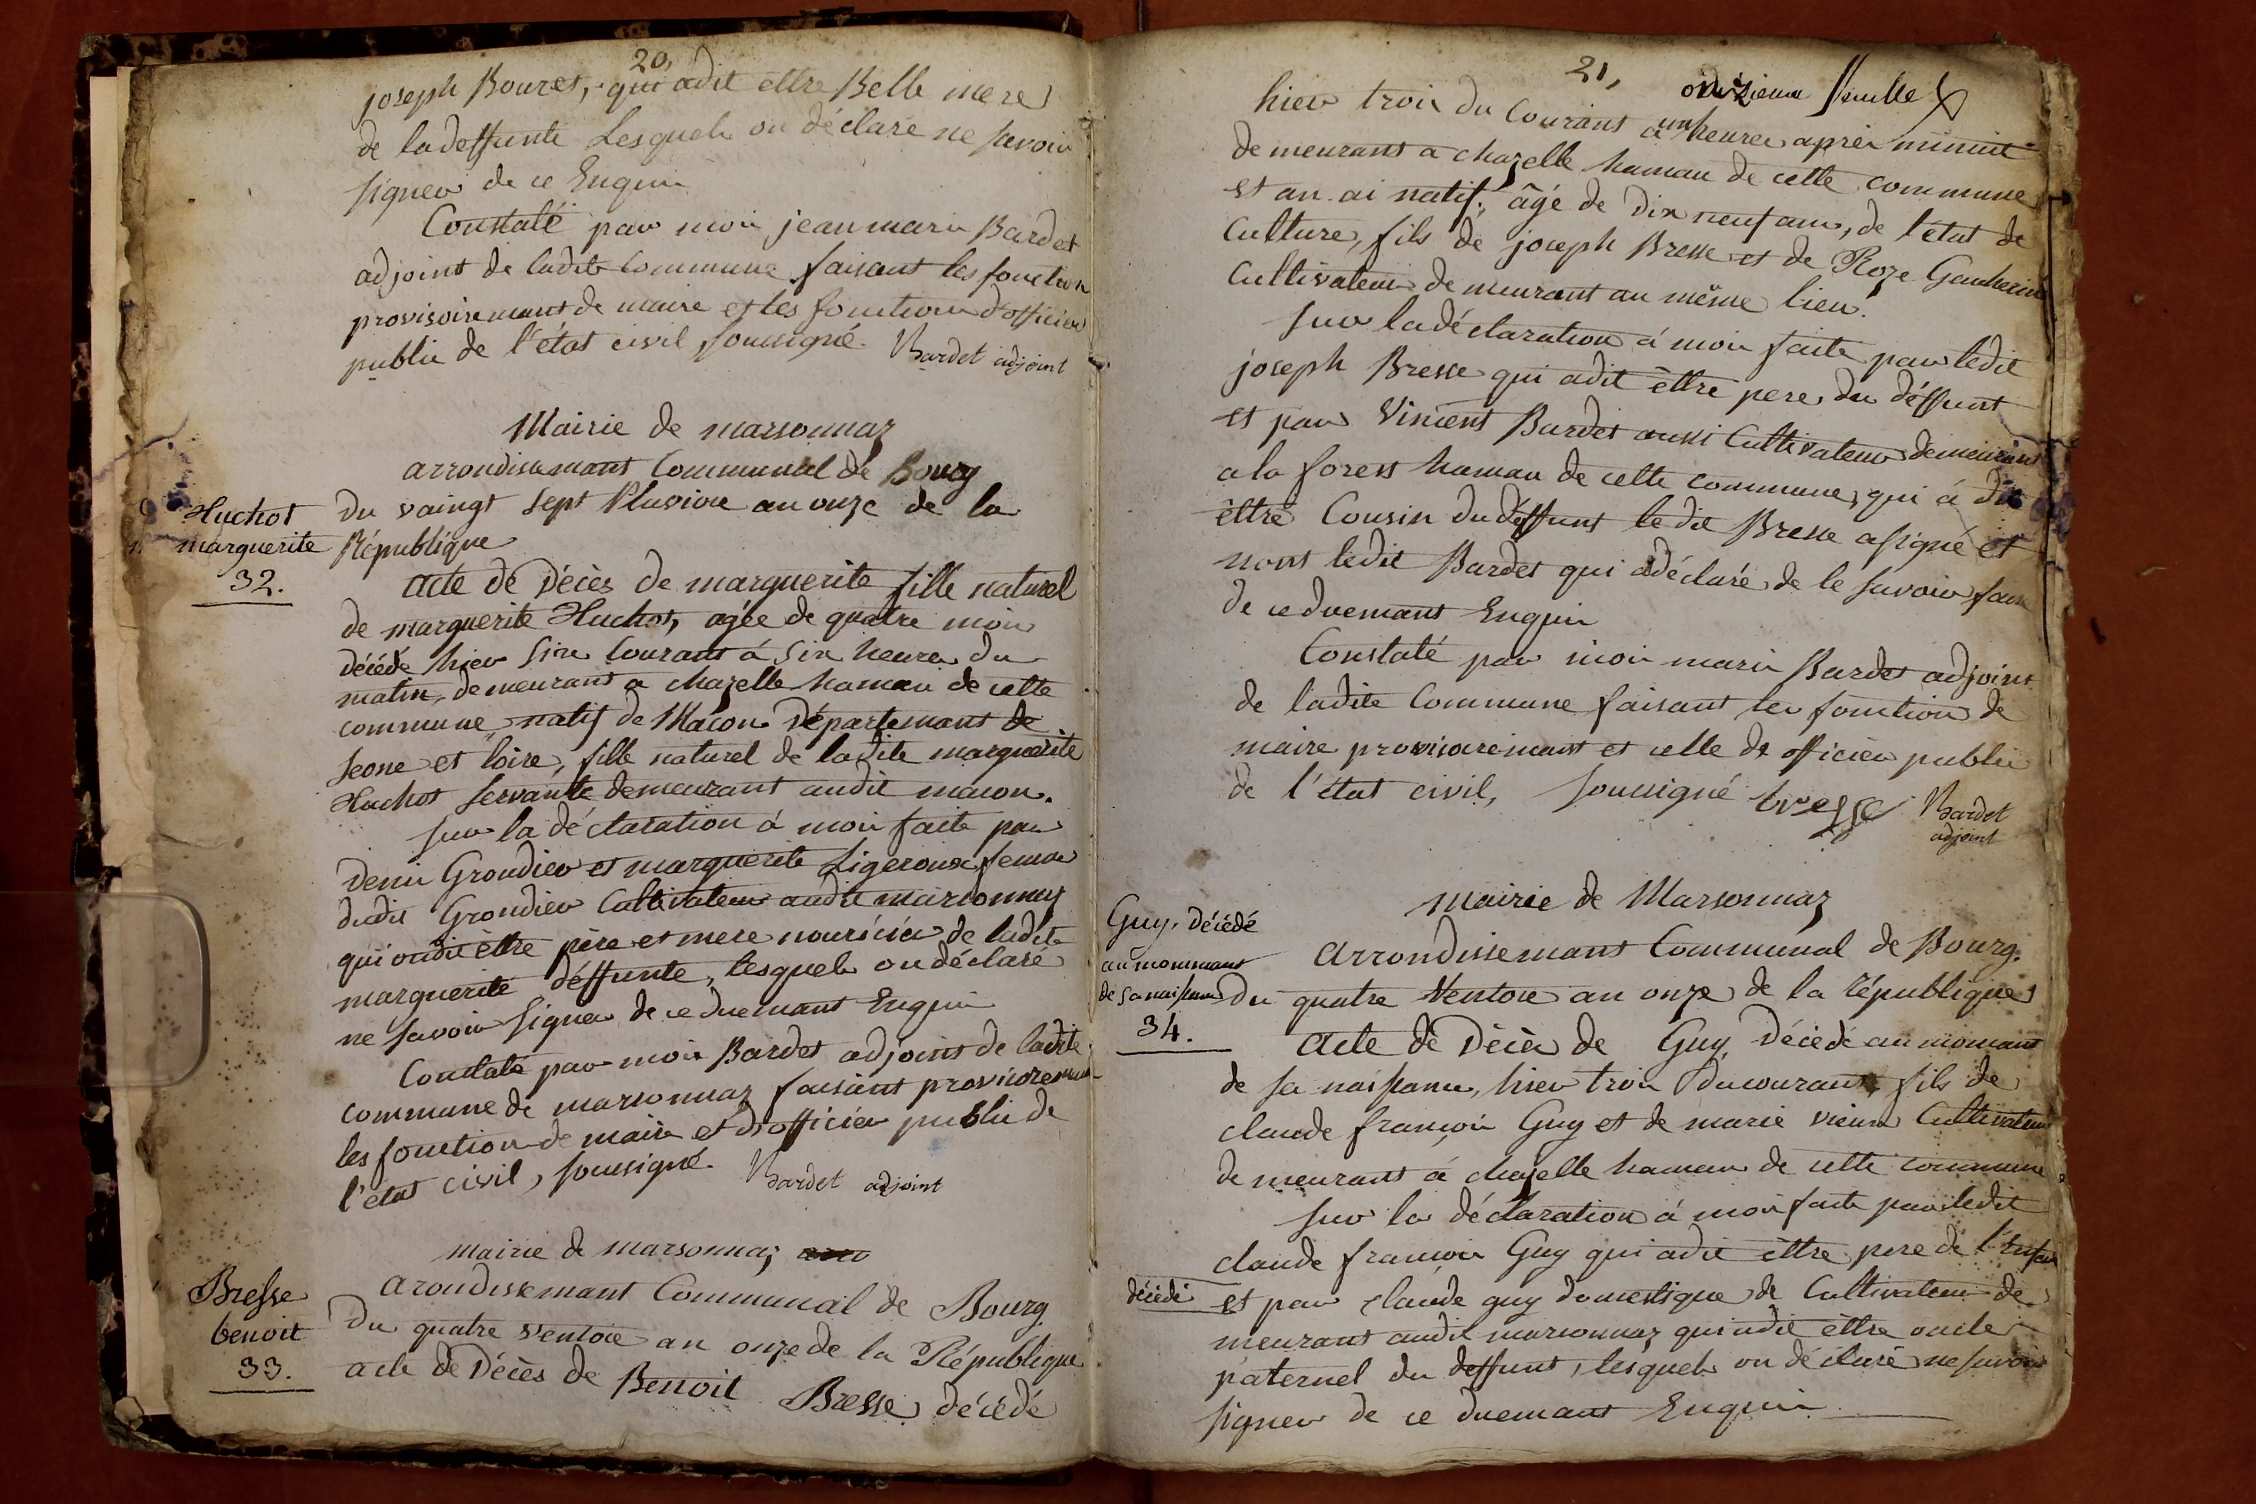 20,
joseph Bouret, qui adit ettre Belle mere
de ladeffunte Lesquels on déclaré ne savoir
signer de ce Enquis
Constaté par moi jean marie Bardet
adjoint de ladite Commune faisant les fonction
provisoiremant de maire et les fonctions d'officier
public de l'état civil soussigné. Bardet adjoint
Mairie de marsonnaz
arrondissemant Communal de Bourg
Huchot
marguerite
32.
Du vaingt sept Pluviose an onze de la
République
acte de Décès de marguerite fille naturel
de marguerite Huchot, agée de quatre mois
décédé hier six Courant á six heures du
matin, demeurant a chazelle hamau de cette
commune natif de Macon Départemant de
seone et loire, fille naturel de ladite marguerite
Huchot servante demeurant audit macon.
sur la déclaration á moi faite par
Denis Grondier et marguerite Ligeroux femme
dudit Grondier Cultivateur audit marsonnaz
qui ondit être père et mere nouriciés de ladite
marguerite déffunte, lesquels on déclaré
ne savoir signer de ce duemant Enquis
Constaté par moi Bardet adjoint de ladite
commune de marsonnaz faisant provisoiremant
les fonction de maire et d'officier public de
l'etat civil, soussigné. Bardet adjoint
mairie de marsonnaz
Bresse
benoit
33.
arondissemant Communal de Bourg
Du quatre ventose an onze de la République
acte de Décès de Benoit Bresse décédé
21, onzieme feuille
hier trois du Courant a un heures après minuit
demeurant a chazelle hamau de cette commune
et an ai natif, âgé de dix neuf ans, de l'état de
Culture, fils de joseph Bresse et de Roze Gautherin
Cultivateur demeurant au même lieu.
sur la déclaration á moi faite par ledit
joseph Bresse qui adit êttre pere du déffunt
et par Vincent Bardet aussi Cultivateur demeurant
a la forest hamau de cette commune, qui á dit
êttre Cousin du déffunt le dit Bresse a signé et
nont ledit Bardet qui adéclaré de le savoir faire
de ce duemant Enquis
Constaté par moi marie Bardet adjoint
de ladite Commune faisant les fonction de
maire provisoiremant et celle de officier public
de l'état civil, soussigné bresse Bardet
adjoint
mairie de Marsonnaz
Guy, décédé
au mommant
de sa naissance
34.
arrondissemant Communal de Bourg.
Du quatre Ventose an onze de la République
acte de Décès de Guy, décédé au momant
de sa naissance, hier trois ducourant, fils de
claude françois Guy et de marie vieux Cultivateur
demeurant á chazelle hamau de cette commune
sur la déclaration á moi faite par ledit
claude françois Guy qui adit êttre pere de l'enfant
décédé et par claude guy domestique de Cultivateur de
meurant audit marsonnaz qui adit êttre oncle
paternel du deffunt, lesquels on déclaré ne savoir
signer de ce duemant Enquis